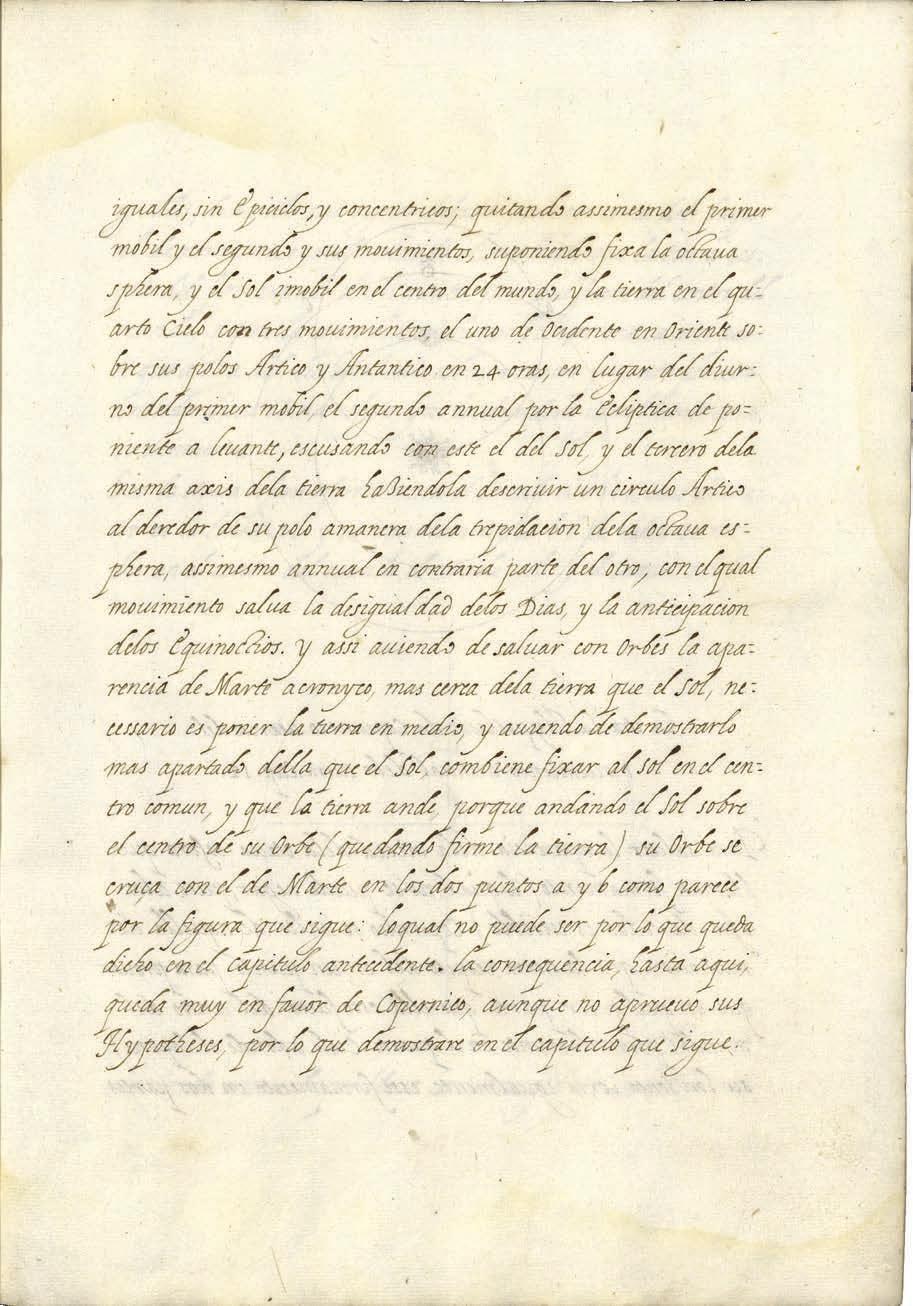 iguales, sin Epiciclos, y concentricos; quitando assimesmo el primer
móbil y el segundo y sus mouimientos, suponiendo fixa la octaua
sphera, y el Sol imobil en el centro del mundo, y la tierra en el qu-
arto Cielo con tres mouimientos, el uno de Ocidente en Oriente so-
bre sus polos Artico y Antantico en 24 oras, en lugar del diur-
no del primer mobil, el segundo annual por la Ecliptica de po-
niente a leuante, escusando con este el del Sol, y el tercero dela
misma axis dela tierra haziendola descriuir un circulo Artico
al deredor de su polo amanera dela trepidacion dela octaua es-
phera, assimesmo annual en contraria parte del otro, con el qual
mouimiento salua la desigualdad delos Dias, y la anticipacion
delos Equinoctios. y assi auiendo de saluar con Orbes la apa-
rencia de Marte acronyco, mas cerca dela tierra que el Sol, ne-
cessario es poner la tierra en medio, y auiendo de demostrarlo
mas apartado della que el Sol, combiene fixar al Sol en el cen-
tro comun, y que la tierra ande, porque andando el Sol sobre
el centro de su Orbe (quedando firme la tierra) su Orbe se
cruça con el de Marte en los dos puntos a y b como parece
por la figura que sigue: loqual no puede ser por lo que queda
dicho en el capitulo antecedente. la consequencia, hasta aqui,
queda muy en fauor de Copernico, aunque no aprueuo sus
Hypotheses, por lo que demostrare en el capitulo que sigue.